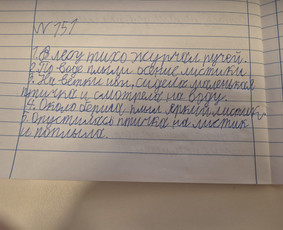 № 151
1. В лесу тихо журчал ручей.
2. По воде плыли осение листики
3. На ветки ивы сидела маленькая
птичка и смотрела на воду.
4. Около берега плыл яркий листик.
5. Опустилась птичка на листик
и поплыла.